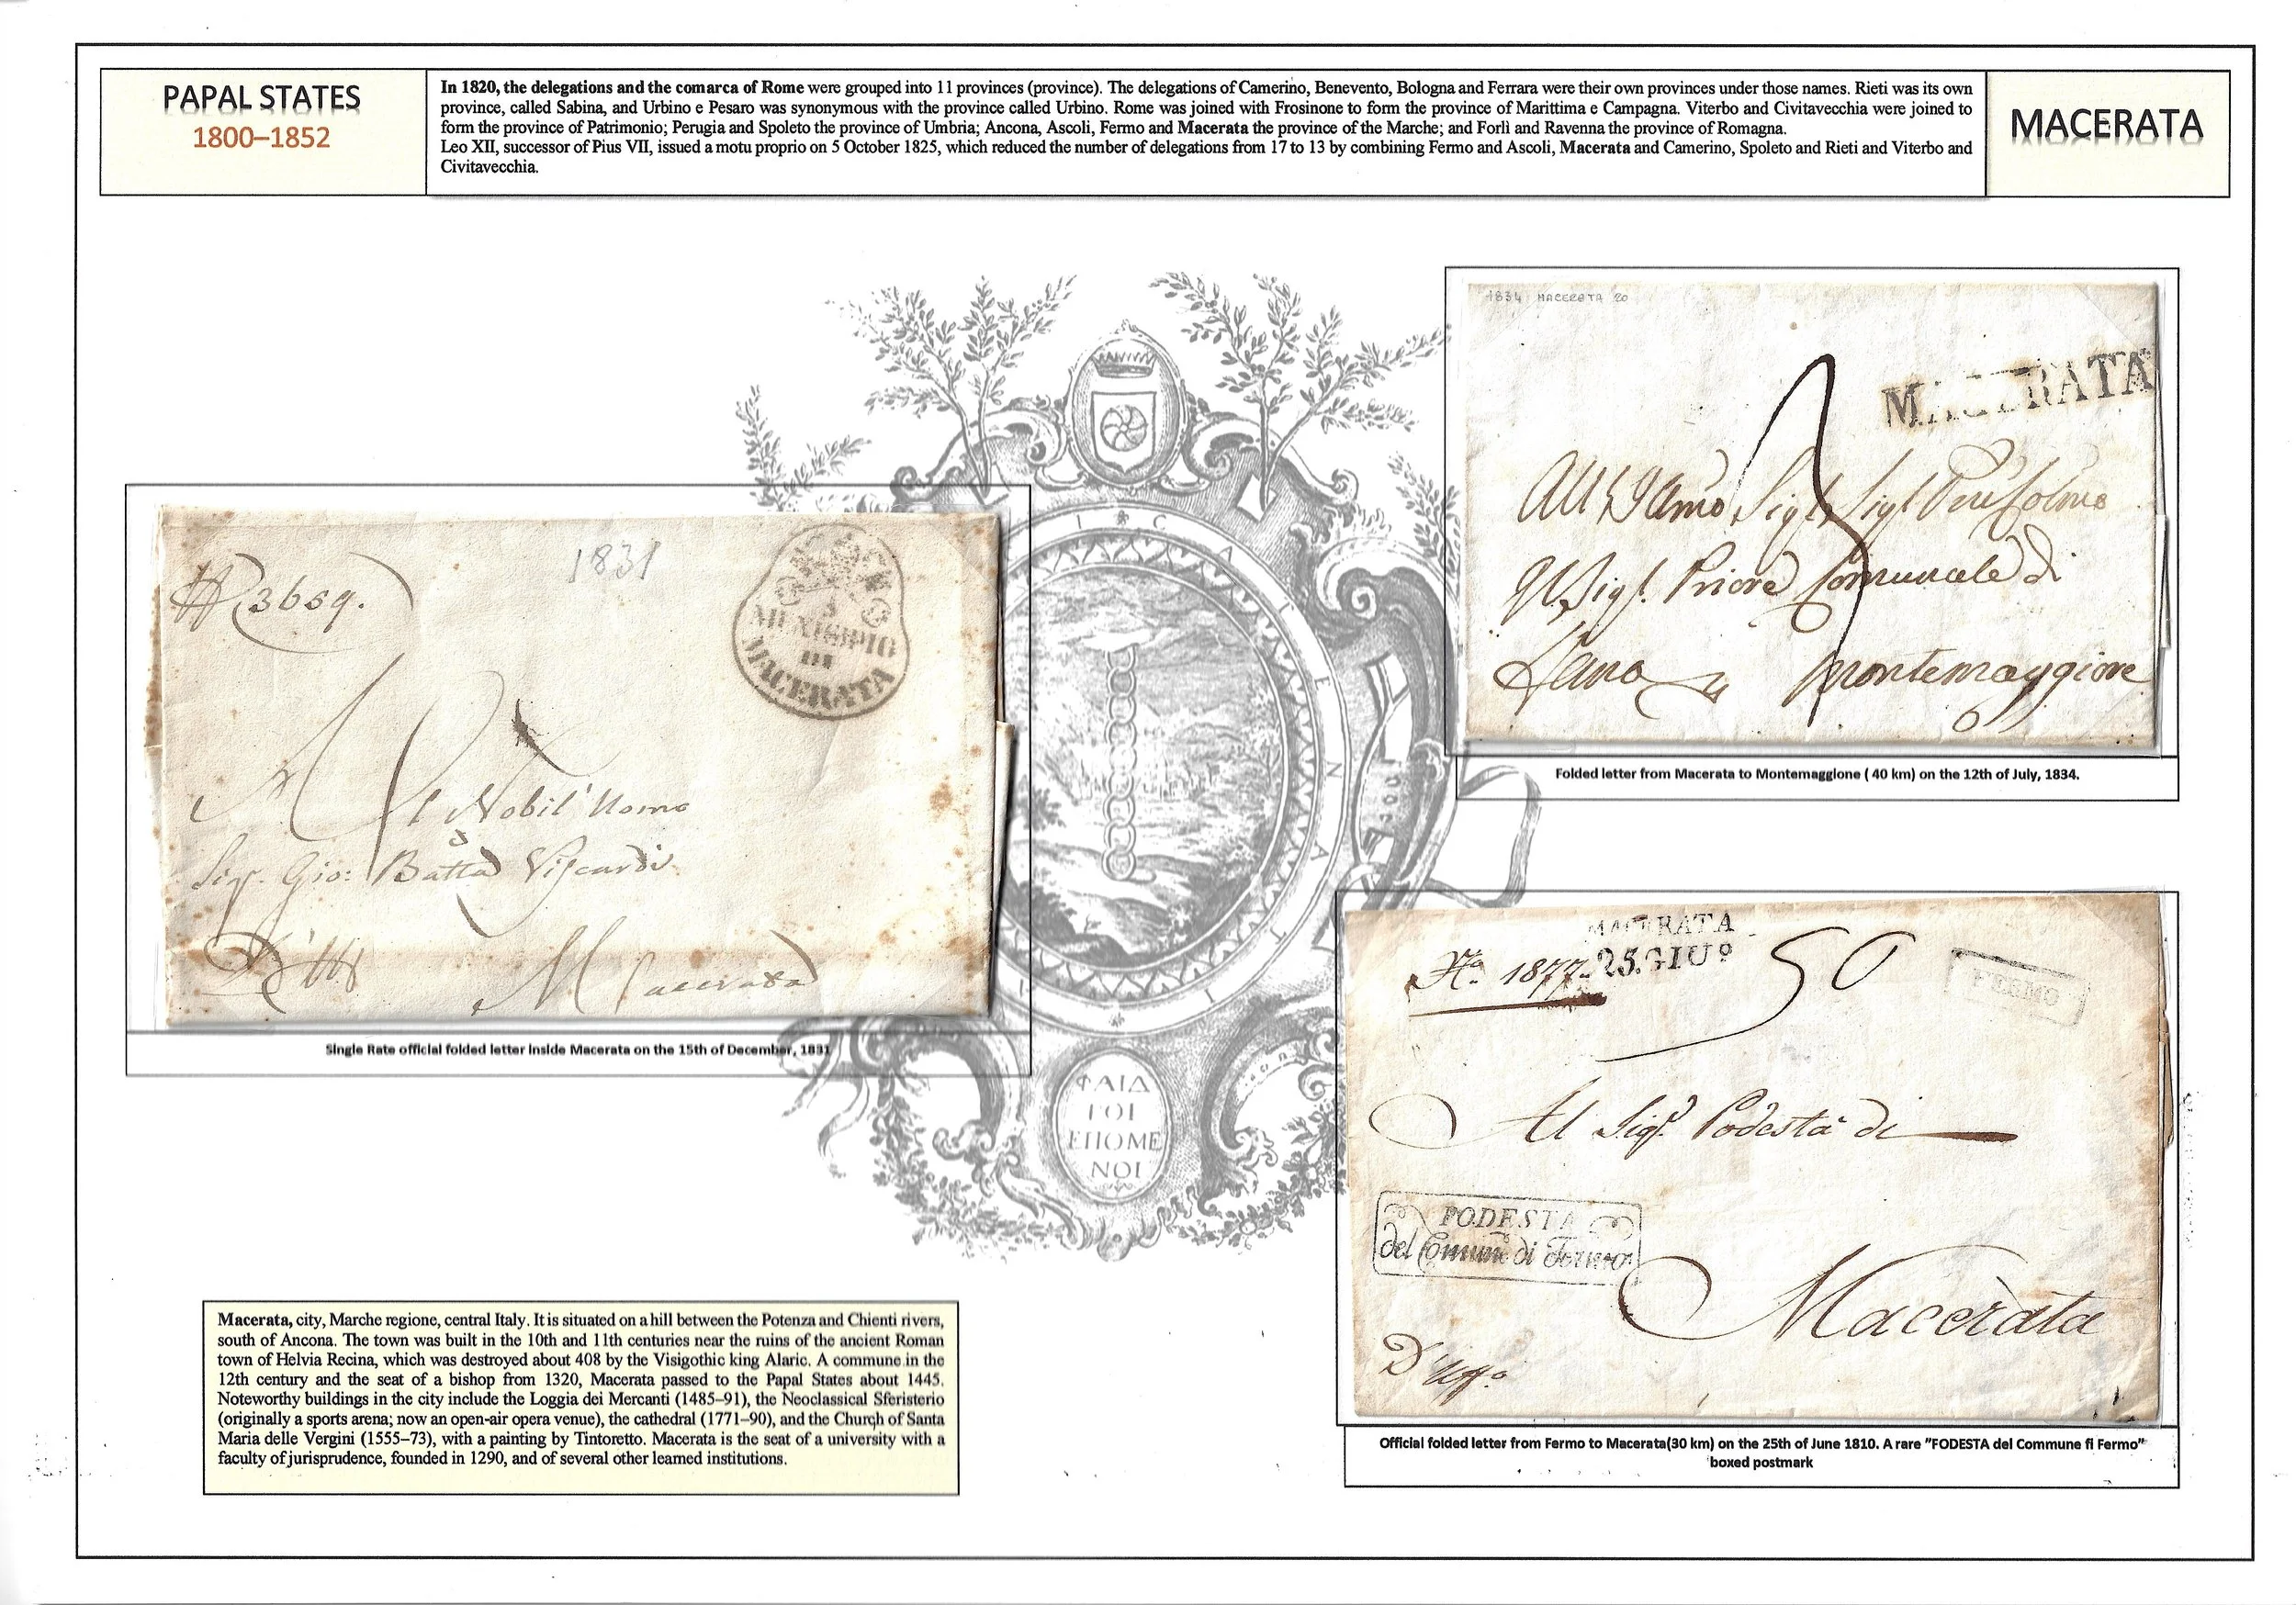 PAPAL STATES
1800–1852
In 1820, the delegations and the comarca of Rome were grouped into 11 provinces (province). The delegations of Camerino, Benevento, Bologna and Ferrara were their own provinces under those names. Rieti was its own
province, called Sabina, and Urbino e Pesaro was synonymous with the province called Urbino. Rome was joined with Frosinone to form the province of Marittima e Campagna. Viterbo and Civitavecchia were joined to
form the province of Patrimonio; Perugia and Spoleto the province of Umbria; Ancona, Ascoli, Fermo and Macerata the province of the Marche; and Forlì and Ravenna the province of Romagna.
Leo XII, successor of Pius VII, issued a motu proprio on 5 October 1825, which reduced the number of delegations from 17 to 13 by combining Fermo and Ascoli, Macerata and Camerino, Spoleto and Rieti and Viterbo and
Civitavecchia.
MACERATA
1834 MACERATA 20
MACERATA
Sigr Sigr
Priore Comunale di
Montemaggiore
Folded letter from Macerata to Montemaggione ( 40 km) on the 12th of July, 1834.
3659.
1831
DI
MACERATA
Al Nobil' Uomo
Sigr. Gio: Batta Viscardi
Macerata
Single Rate official folded letter inside Macerata on the 15th of December, 1831
ΦΑΙΔ
ΡΟΙ
ΕΠΟΜΕ
ΝΟΙ
MACERATA
25.GIUº
No. 1877.
50
FERMO
Al Sigr. Podestà di
PODESTA
del Comune di Fermo
Macerata
D'Uffo.
Official folded letter from Fermo to Macerata(30 km) on the 25th of June 1810. A rare "FODESTA del Commune fi Fermo"
boxed postmark
Macerata, city, Marche regione, central Italy. It is situated on a hill between the Potenza and Chienti rivers,
south of Ancona. The town was built in the 10th and 11th centuries near the ruins of the ancient Roman
town of Helvia Recina, which was destroyed about 408 by the Visigothic king Alaric. A commune in the
12th century and the seat of a bishop from 1320, Macerata passed to the Papal States about 1445.
Noteworthy buildings in the city include the Loggia dei Mercanti (1485–91), the Neoclassical Sferisterio
(originally a sports arena; now an open-air opera venue), the cathedral (1771–90), and the Church of Santa
Maria delle Vergini (1555–73), with a painting by Tintoretto. Macerata is the seat of a university with a
faculty of jurisprudence, founded in 1290, and of several other learned institutions.